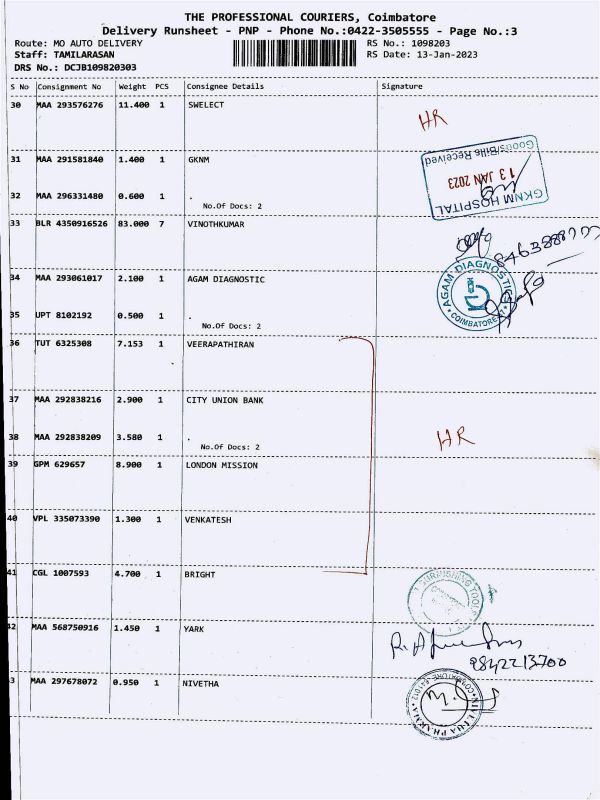 THE PROFESSIONAL COURIERS, Coimbatore
Delivery Runsheet - PNP - Phone No.:0422-3505555 - Page No.:3
Route: MO AUTO DELIVERY RS No.: 1098203
Staff: TAMILARASAN RS Date: 13-Jan-2023
DRS No.: DCJB109820303
S No Consignment No Weight PCS Consignee Details Signature
30 MAA 293576276 11.400 1 SWELECT
HR
31 MAA 291581840 1.400 1 GKNM
Goods/Bills Received
13 JAN 2023
GKNM HOSPITAL
32 MAA 296331480 0.600 1 .
No.Of Docs: 2
33 BLR 4350916526 83.000 7 VINOTHKUMAR
34 MAA 293061017 2.100 1 AGAM DIAGNOSTIC
AGAM DIAGNOSTIC
COIMBATORE
35 UPT 8102192 0.500 1 .
No.Of Docs: 2
36 TUT 6325308 7.153 1 VEERAPATHIRAN
37 MAA 292838216 2.900 1 CITY UNION BANK
38 MAA 292838209 3.580 1 .
No.Of Docs: 2
HR
39 GPM 629657 8.900 1 LONDON MISSION
40 VPL 335073390 1.300 1 VENKATESH
41 CGL 1007593 4.700 1 BRIGHT
42 MAA 568750916 1.450 1 YARK
9842213700
3 MAA 297678072 0.950 1 NIVETHA